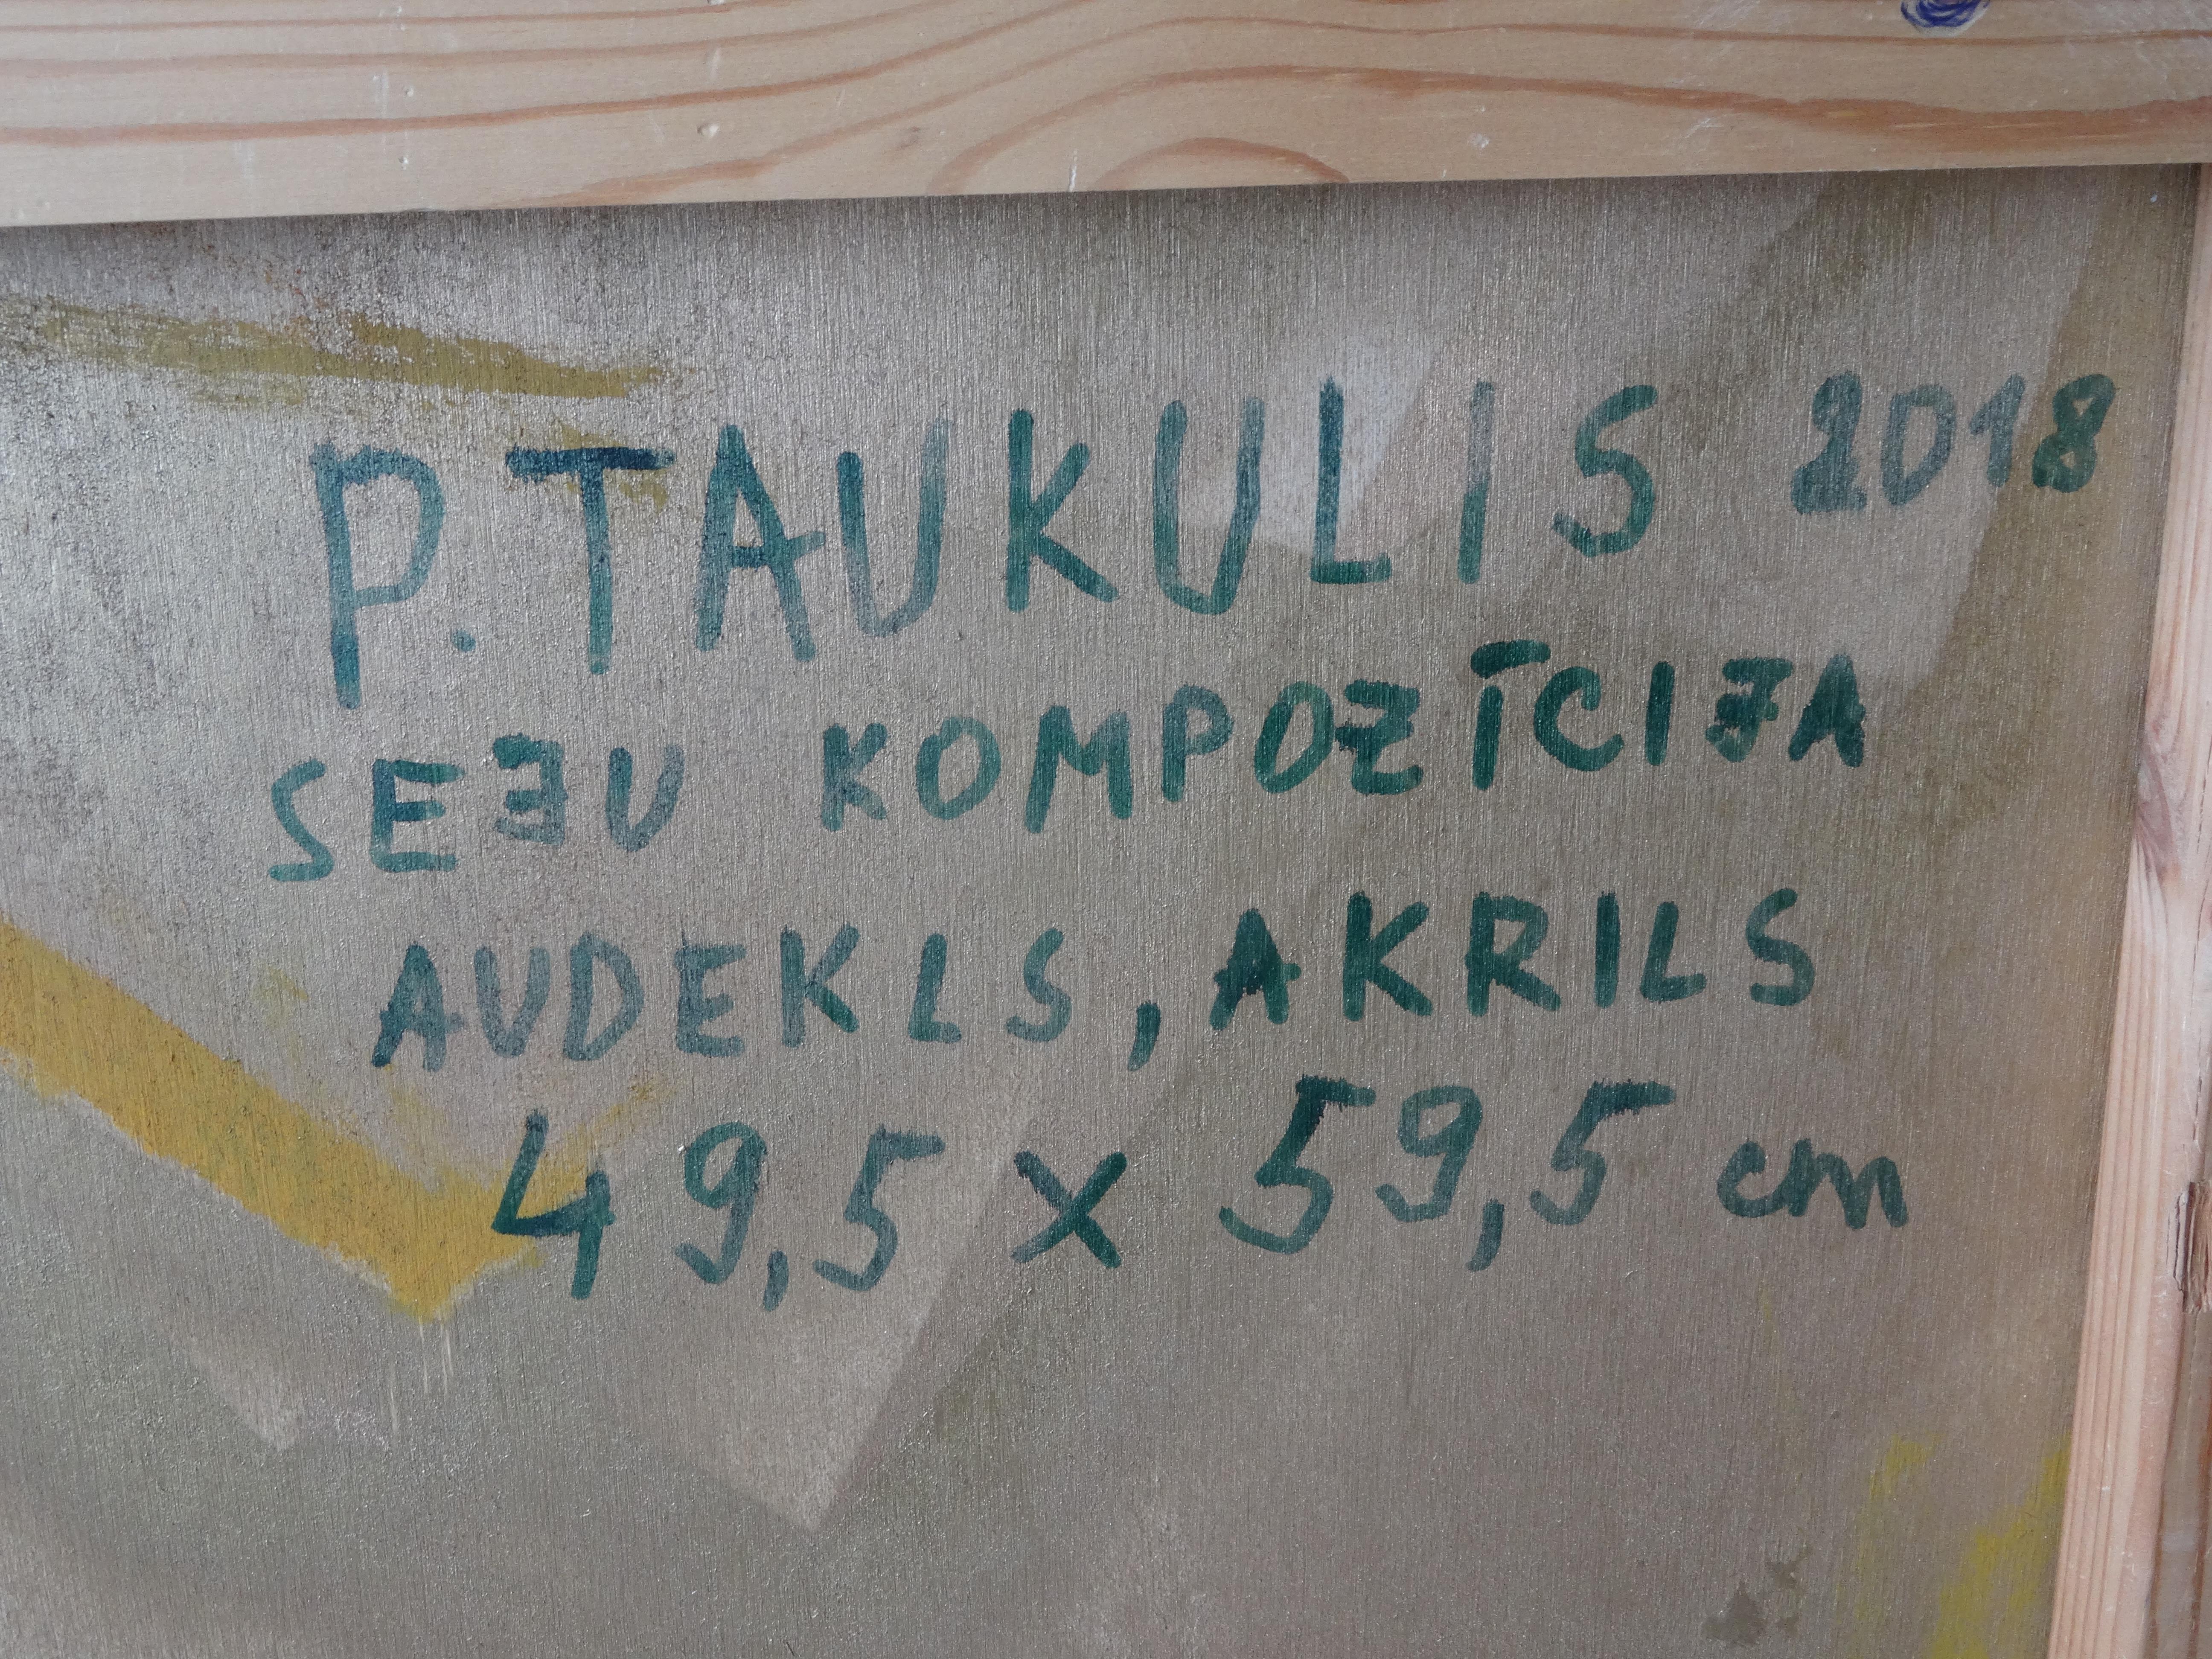 P. TAUKULIS 2018
SEJU KOMPOZĪCIJA
AUDEKLS, AKRILS
49,5 x 59,5 cm